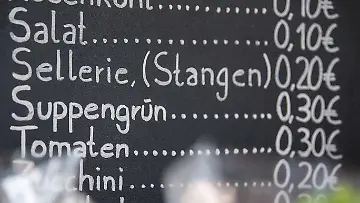 Rosenkohl ........ 0,10€
Salat .................. 0,10€
Sellerie, (Stangen) 0,20€
Suppengrün ........... 0,30€
Tomaten ................ 0,30€
Zucchini ............ 0,20€